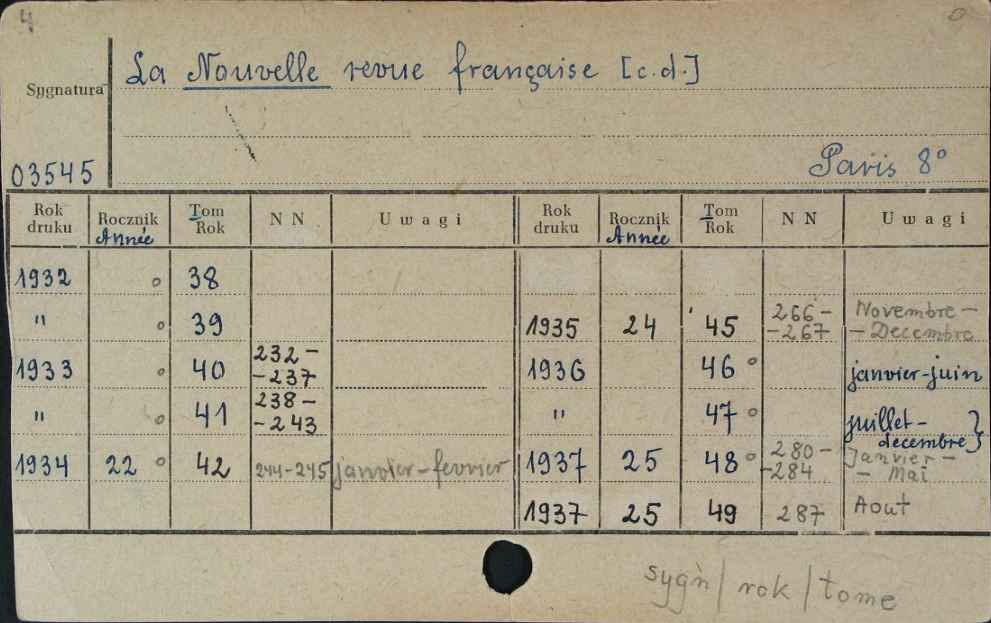 4
La Nouvelle revue française [c.d.]
Sygnatura
03545
Paris 8°
Rok druku | Rocznik Année | Tom Rok | NN | Uwagi | Rok druku | Rocznik Année | Tom Rok | NN | Uwagi
1932 ° 38
" ° 39 | 1935 24 45 266-267 Novembre - Decembre
1933 ° 40 232-237 | 1936 46 ° janvier-juin
" ° 41 238-243 | " 47 ° juillet-decembre}
1934 22 ° 42 244-245 janvier-fevrier | 1937 25 48 ° 280-284 Janvier - Mai
1937 25 49 287 Aout
sygn/rok/tome